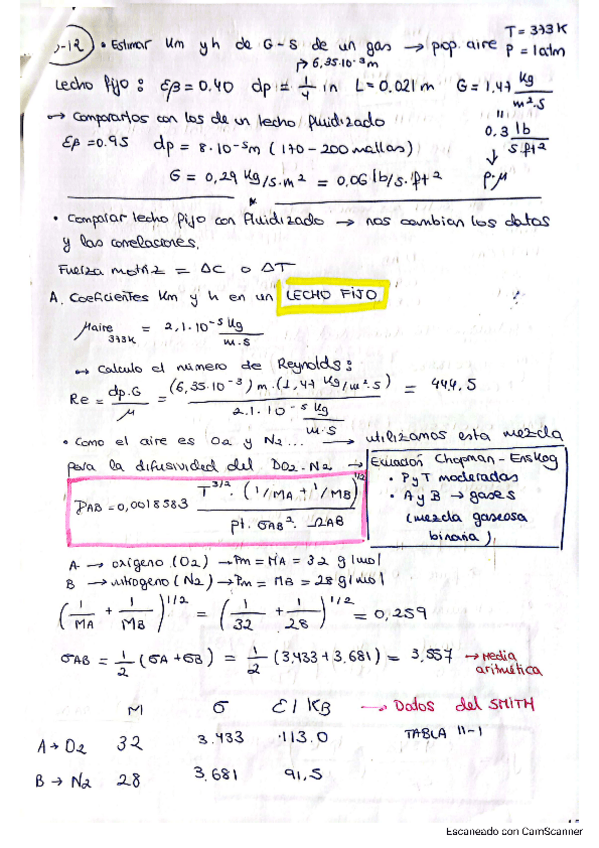 -12 • Estimar Km y h de G-S de un gas → pop. aire T = 373K
P = 1atm
↱ 6,35.10⁻³m
Lecho Fijo: Eβ = 0.40 dp = 1/4 in L = 0.021 m G = 1.47 Kg/m².s
↳ Compararlos con los de un lecho fluidizado
0,3 lb/s.ft²
Eβ = 0.95 dp = 8.10⁻⁵m (170 - 200 mallas)
↓
G = 0,29 Kg/s.m² = 0,06 lb/s.ft² ρ.μ
• Comparar lecho fijo con Fluidizado → nos cambian los datos
y las correlaciones.
Fuerza motriz = ΔC o ΔT
A. Coeficientes Km y h en un LECHO FIJO
μaire 373K = 2,1.10⁻⁵ Kg/m.s
↳ Calculo el número de Reynolds:
Re = dp.G/μ = (6,35.10⁻³)m.(1,47 Kg/m².s)/2.1.10⁻⁵ Kg/m.s = 444.5
• Como el aire es O2 y N2... → utilizamos esta mezcla
para la difusividad del DO2-N2 → Ecuación Chapman-Enskog
• P y T moderadas
• A y B → gases
(mezcla gaseosa
binaria)
DAB = 0,0018583 T^3/2 . (1/MA + 1/MB)^1/2 / pt. σAB². ΩAB
A → oxígeno (O2) → Pm = MA = 32 g/mol
B → nitrogeno (N2) → Pm = MB = 28 g/mol
(1/MA + 1/MB)^1/2 = (1/32 + 1/28)^1/2 = 0,259
σAB = 1/2 (σA + σB) = 1/2 (3,433 + 3,681) = 3,557 → Media
aritmética
M σ E/KB → Datos del SMITH
A → O2 32 3.433 113.0 TABLA 11-1
B → N2 28 3,681 91,5
Escaneado con CamScanner